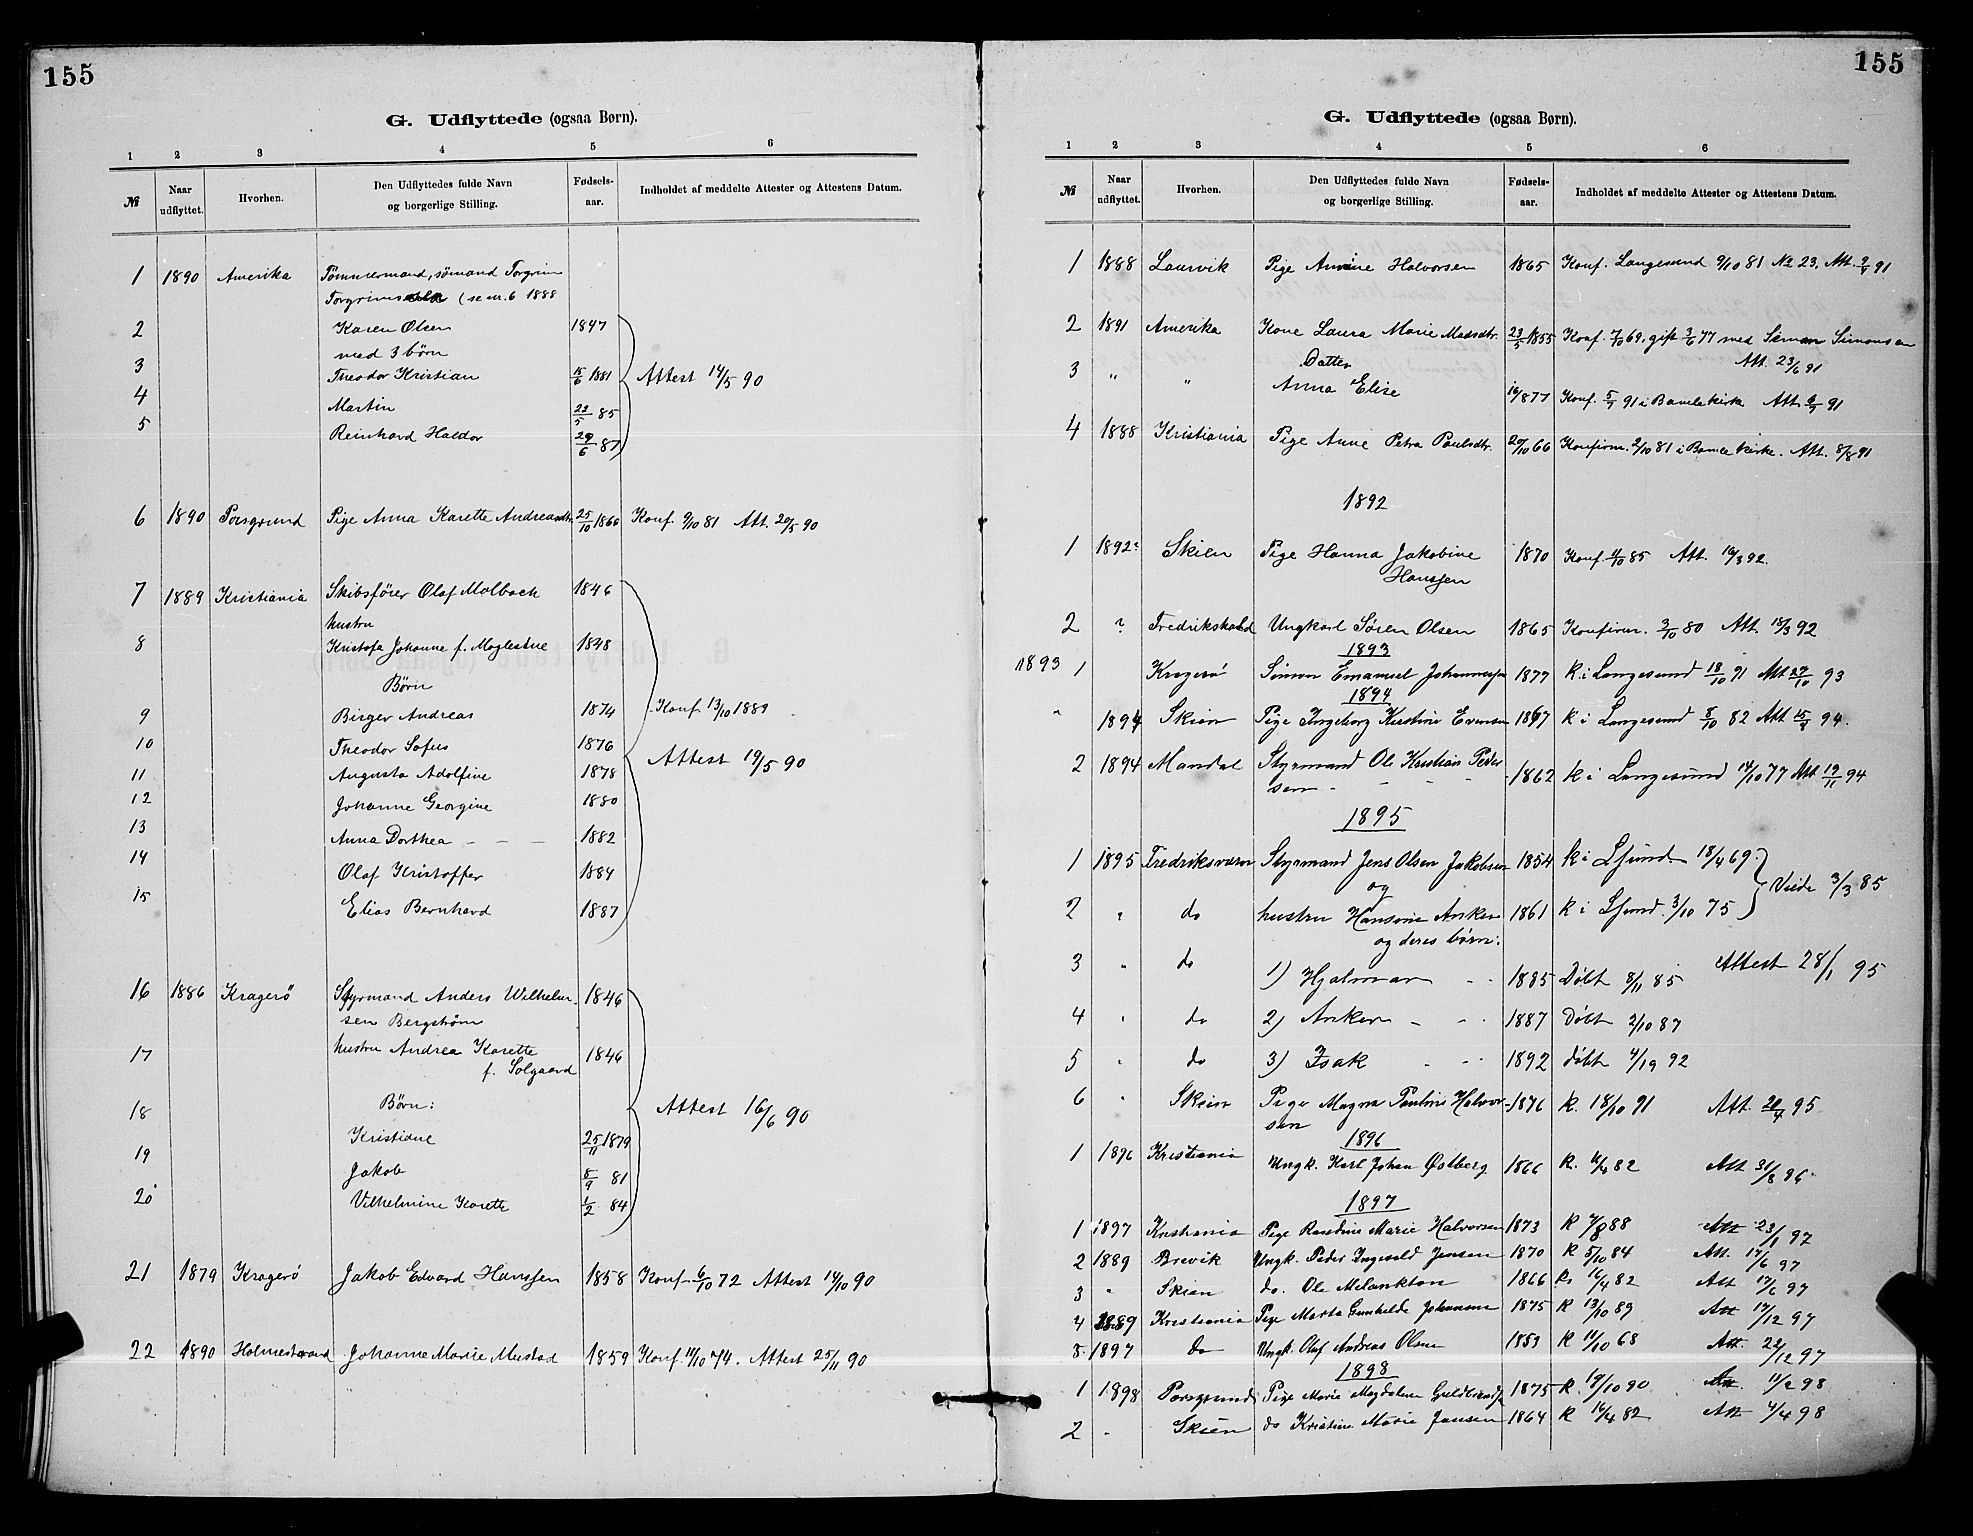 155
G. Udflyttede (ogsaa Børn).
1 2 3 4 5 6
№ Naar udflyttet. Hvorhen. Den Udflyttedes fulde Navn og borgerlige Stilling. Fødsels-aar. Indholdet af meddelte Attester og Attestens Datum.
1 1890 Amerika Tømmermand, sømand Torgrim
(se nr. 6 1888
2 Karen Olsen 1847
med 3 børn
3 Theodor Kristian 15/6 1881 Attest 14/5 90
4 Martin 23/5 85
5 Reinhard Haldor 29/6 87
6 1890 Porsgrund Pige Anna Karette Andreasdtr. 25/10 1866 Konf. 9/10 81 Att. 20/5 90
7 1889 Kristiania Skibsfører Olaf Molbach 1846
hustru
8 Kristofa Johanne f. Moglestue 1848
Børn
9 Birger Andreas 1874 Konf 13/10 1889
10 Theodor Sofus 1876
Attest 19/5 90
11 Augusta Adolfine 1878
12 Johanne Georgine 1880
13 Anna Dorthea - - - 1882
14 Olaf Kristoffer 1884
15 Elias Bernhard 1887
16 1886 Kragerø Styrmand Anders Wilhelm-
sen Bergstrøm 1846
17 hustru Andrea Karette 1846
f. Solgaard
18 Børn: Attest 16/6 90
Kristiane 25/11 1879
19 Jakob 5/9 81
20 Vilhelmine Karette 1/2 84
21 1879 Kragerø Jakob Edvard Hanssen 1858 Konf. 6/10 72 Attest 14/10 90
22 1890 Holmestrand Johanne Marie Mustad 1859 Konf. 11/10 74. Attest 25/11 90
155
G. Udflyttede (ogsaa Børn).
1 2 3 4 5 6
№ Naar udflyttet. Hvorhen. Den Udflyttedes fulde Navn og borgerlige Stilling. Fødsels-aar. Indholdet af meddelte Attester og Attestens Datum.
1 1888 Laurvik Pige Halvorsen 1865 Konf. Langesund 9/10 81 No 23. Att. 91
2 1891 Amerika Kone Laura Marie Madsdtr. 23/5 1855 Konf. 7/10 69. gift 3/6 77 med Simon Simonsen
Datter Att. 23/6 91
3 " " Anna Elise 877 Konf. 5/7 91 i Bamle kirke Att. 91
4 1888 Kristiania Pige Anne Petra Paulsdtr. 20/10 66 Konfirm. 2/10 81 i Bamle kirke. Att. 8/8 91
1892
1 1892? Skien Pige Hanna Jakobine 1870 Konf. 4/10 85 Att. 16/3 92.
Hanssen
2 ? Fredrikshald Ungkarl Søren Olsen 1865 Konfirm. 3/10 80 Att. 15/3 92
1893
1893 1 Kragerø Simon Emanuel Johannessen 1877 k. i Langesund 18/10 91 Att 27/10 93
1894
" 1894 Skien Pige Ingeborg Kristine Evensen 1867 k i Langesund 8/10 82 Att 94.
2 1894 Mandal Styrmand Ole Kristian Peder
sen - - - - 1862 k i Langesund 14/10 77 Att 19/11 94
1895
1 1895 Fredriksværn Styrmand Jens Olsen Jakobsen 1854 k i Lsund 18/4 69.
og Viede 3/3 85
2 " do hustru Hansine Anker 1861 k i Lsund. 3/10 75
og deres børn:
3 " do 1) Hjalmar - - 1885 Døbt 8/11 85 Attest 28/1 95
4 " do 2) Anker - - - 1887 Døbt 2/10 87
5 " do 3) Isak - - - 1892 døbt 4/19 92
6 " Skien Pige Magna Pauline Halvor-
sen 1876 k. 18/10 91 Att. 95
1896
1 1896 Kristiania Ungk. Karl Johan Østberg 1866 k. 82 Att 31/8 96.
1897
1 1897 Kristiania Pige Randine Marie Halvorsen 1873 k 88 Att 23/1 97
2 1889 Brevik Ungk. Peder Ingevald Jensen 1870 k 5/10 84 Att. 17/6 97
3 " Skien do. Ole Melankton 1866 k. 16/4 82 Att 17/6 97
4 1889 Kristiania Pige Marta Gunhilde Johansen 1875 k 13/10 89 Att 17/12 97
5 1897 do Ungk. Oluf Andreas Olsen 1853 k 11/10 68 Att. 22/12 97
1898
1 1898 Porsgrund Pige Marie Magdalene 1875 k. 19/10 90 Att. 11/2 98
2 " Skien do Kristine Marie Jansen 1864 k 16/4 82 Att 4/4 98